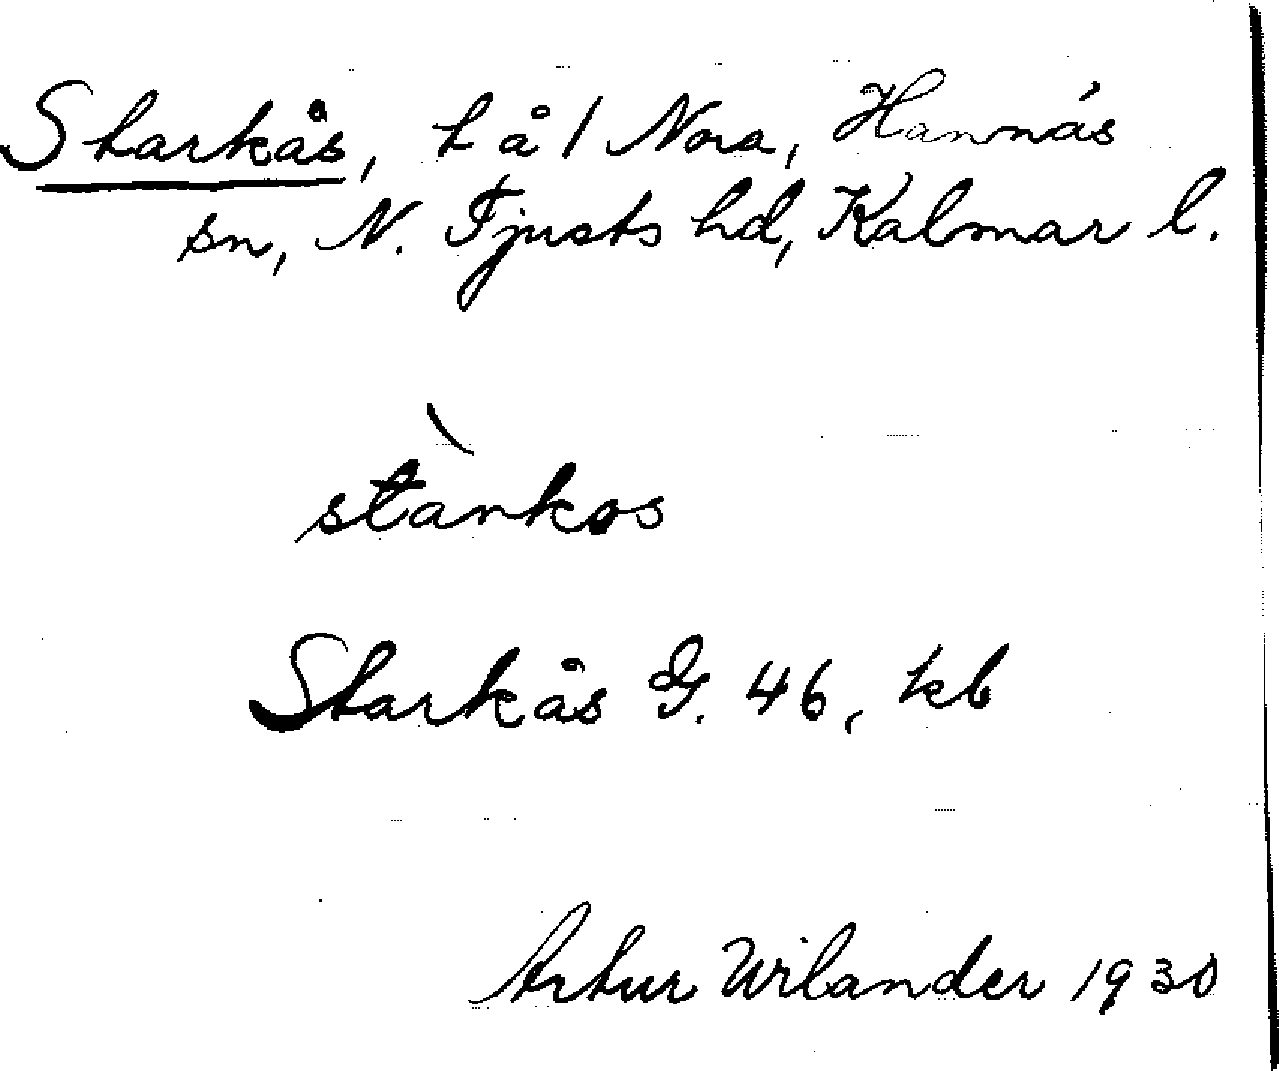 Starkås, t å / Nora, Hannäs
sn, N. Tjusts hd, Kalmar l.
stàrkos
Starkås G. 46, kb
Artur Wilander 1930